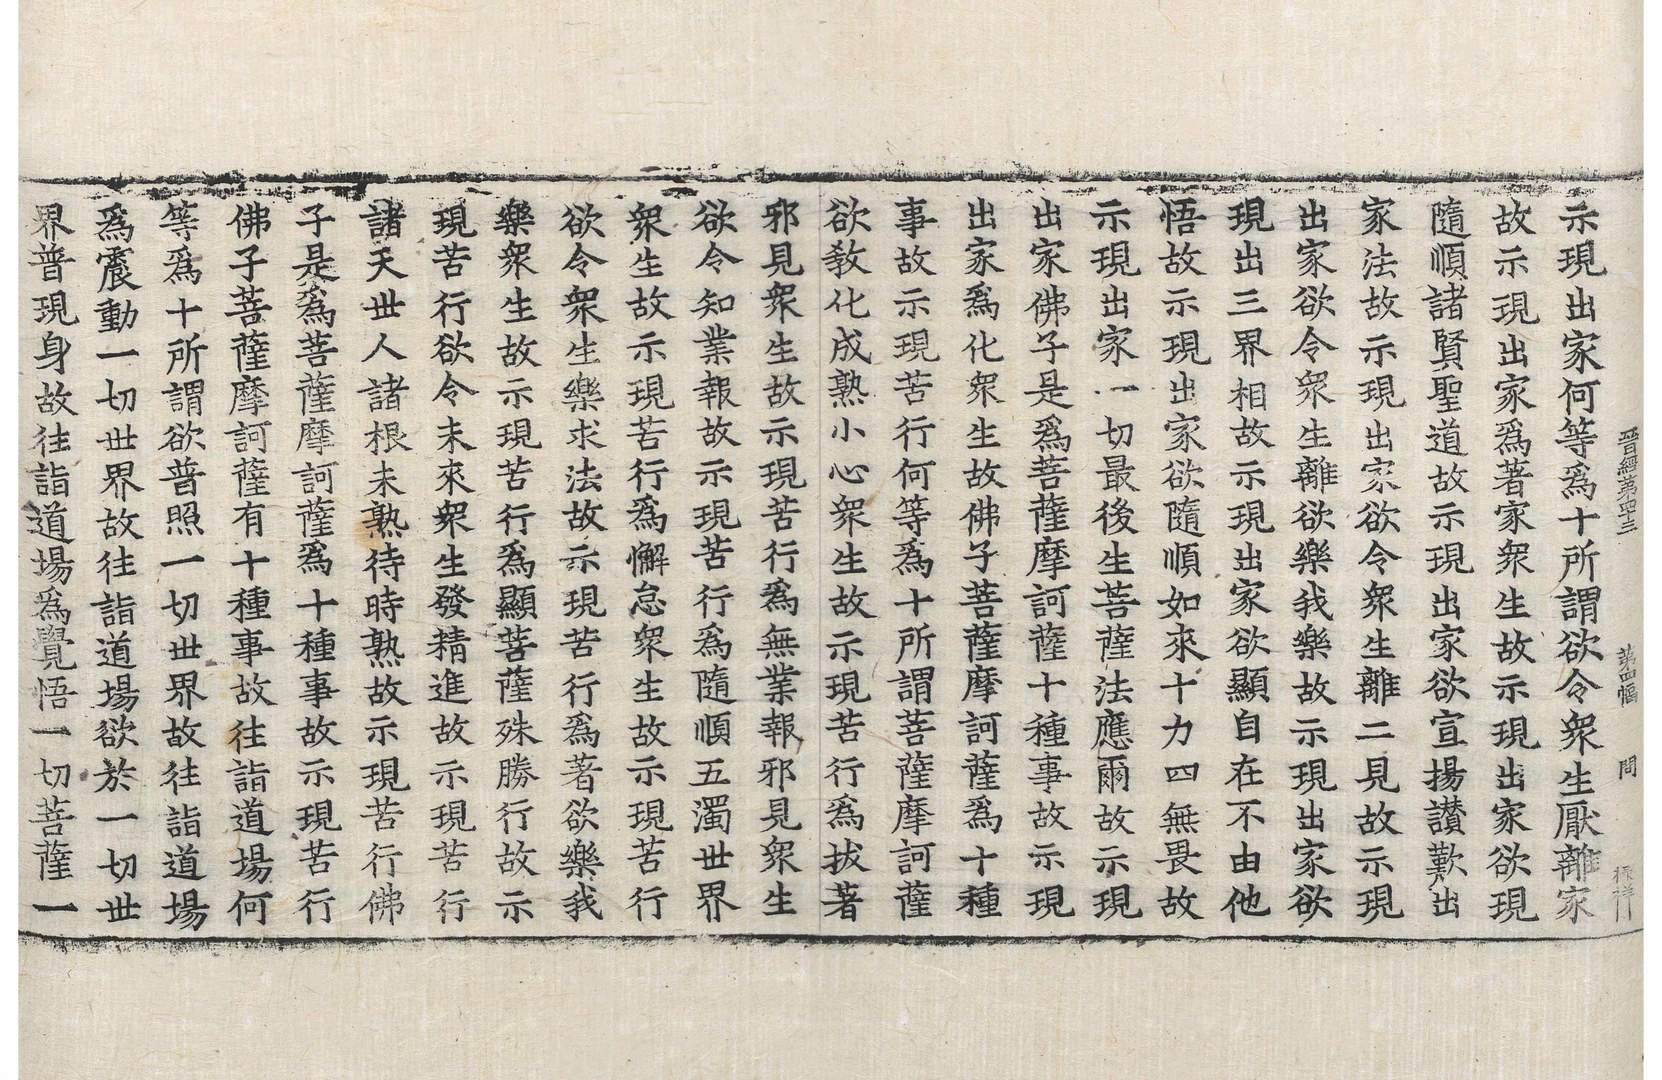 晉經第四十三 第四幅 問
示現出家何等爲十所謂欲令衆生厭離家
故示現出家爲著家衆生故示現出家欲現
隨順諸賢聖道故示現出家欲宣揚讃歎出
家法故示現出家欲令衆生離二見故示現
出家欲令衆生離欲樂我樂故示現出家欲
現出三界相故示現出家欲顯自在不由他
悟故示現出家欲隨順如來十力四無畏故
示現出家一切最後生菩薩法應爾故示現
出家佛子是爲菩薩摩訶薩十種事故示現
出家爲化衆生故佛子菩薩摩訶薩爲十種
事故示現苦行何等爲十所謂菩薩摩訶薩
欲教化成熟小心衆生故示現苦行爲拔著
邪見衆生故示現苦行爲無業報邪見衆生
欲令知業報故示現苦行爲隨順五濁世界
衆生故示現苦行爲懈怠衆生故示現苦行
欲令衆生樂求法故示現苦行爲著欲樂我
樂衆生故示現苦行爲顯菩薩殊勝行故示
現苦行欲令未來衆生發精進故示現苦行
諸天世人諸根未熟待時熟故示現苦行佛
子是爲菩薩摩訶薩爲十種事故示現苦行
佛子菩薩摩訶薩有十種事故往詣道場何
等爲十所謂欲普照一切世界故往詣道場
爲震動一切世界故往詣道場欲於一切世
界普現身故往詣道場爲覺悟一切菩薩一